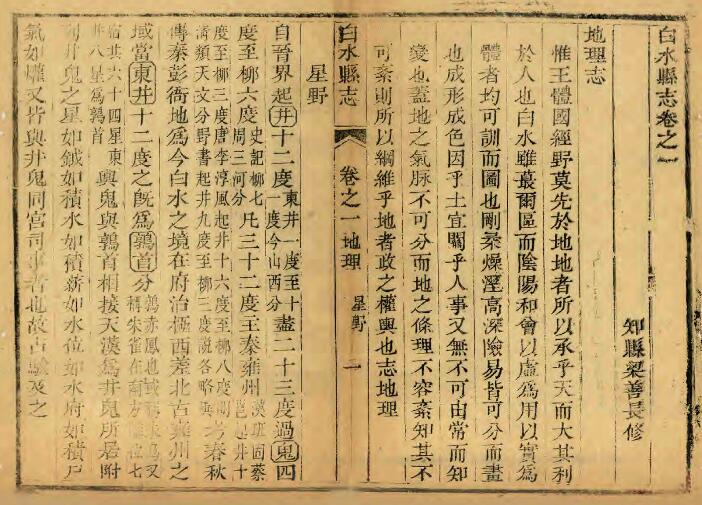 白水縣志卷之一
知縣梁善長修
地理志
惟王體國經野莫先於地地者所以承乎天而大其利
於人也白水雖蕞爾區而陰陽和會以虛爲用以實爲
體者均可訓而圖也剛柔燥溼高深險易皆可分而畫
也成形成色因乎土宜關乎人事又無不可由常而知
變也蓋地之氣脉不可分而地之條理不容紊知其不
可紊則所以綱維乎地者政之權輿也志地理
白水縣志 卷之一 地理 星野 一
星野
自晉界起井十二度東井一度至十一度今山西分盡二十三度過鬼四
度至柳六度史記柳七周三河分凡三十二度王秦雍州漢班固蔡邕起井十
度至柳三度唐李淳風起井十六度至柳八度
淸類天文分野書起井九度至柳三度說各略 考春秋
傳秦彭衙地爲今白水之境在府治極西差北古雍州之
域當東井十二度之旣爲鶉首分鶉赤鳳也 又
稱朱雀在 七
宿共六十四星東
井八星爲鶉首 輿鬼與鶉首相接天漢爲井鬼所居附
井鬼之星如鉞如積水如積薪如水位如水府如積尸
氣如爟又皆與井鬼同宮司事者也故占驗及之